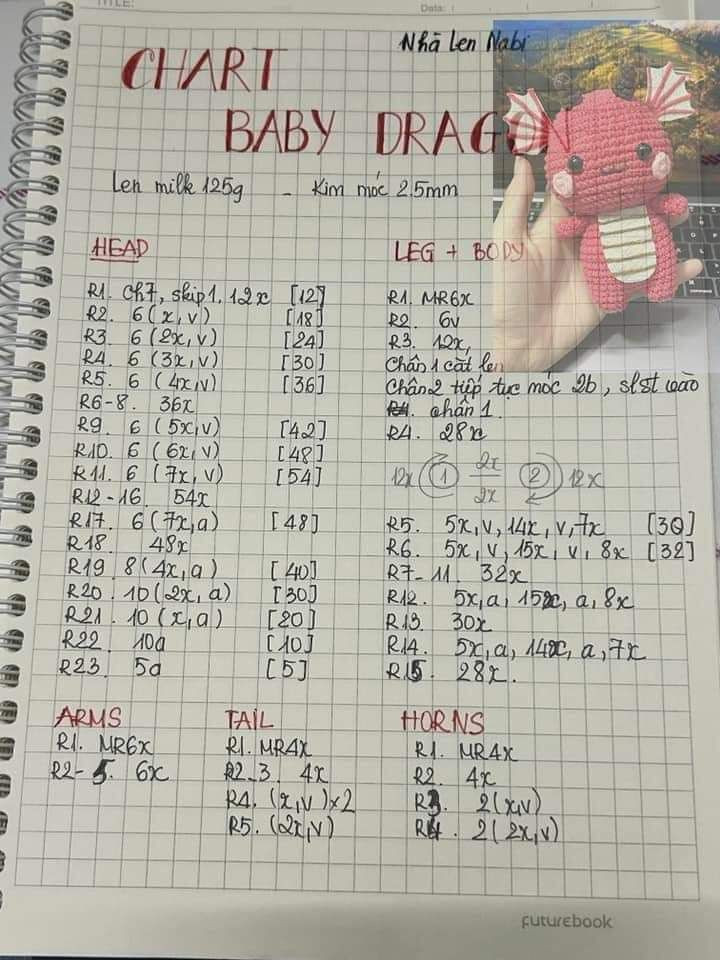 TITLE:
Data:
Nhà Len Nabi
CHART
BABY DRAGON
Len milk 125g - Kim móc 2.5mm
HEAD
R1. Ch7, skip1, 12x [12]
R2. 6(x,v) [18]
R3. 6(2x,v) [24]
R4. 6(3x,v) [30]
R5. 6 (4x,v) [36]
R6-8. 36x
R9. 6 (5x,v) [42]
R10. 6 (6x,v) [48]
R11. 6 (7x,v) [54]
R12-16 54x
R17. 6(7x,a) [48]
R18. 48x
R19. 8(4x,a) [40]
R20. 10(2x,a) [30]
R21. 10(x,a) [20]
R22. 10a [10]
R23. 5a [5]
LEG + BODY
R1. MR6x
R2. 6v
R3. 12x,
Chân 1 cắt len
Chân 2 tiếp tục móc 2b, slst vào
chân 1.
R4. 28x
12x 1 2x 2 12x
2x
R5. 5x,v,14x,v,7x [30]
R6. 5x,v,15x,v,8x [32]
R7-11. 32x
R12. 5x,a,15x,a,8x
R13. 30x
R14. 5x,a,14x,a,7x
R15. 28x.
ARMS
R1. MR6x
R2-5. 6x
TAIL
R1. MR4x
R2-3. 4x
R4. (x,v)x2
R5. (2x,v)
HORNS
R1. MR4x
R2. 4x
R3. 2(x,v)
R4. 2(2x,v)
futurebook